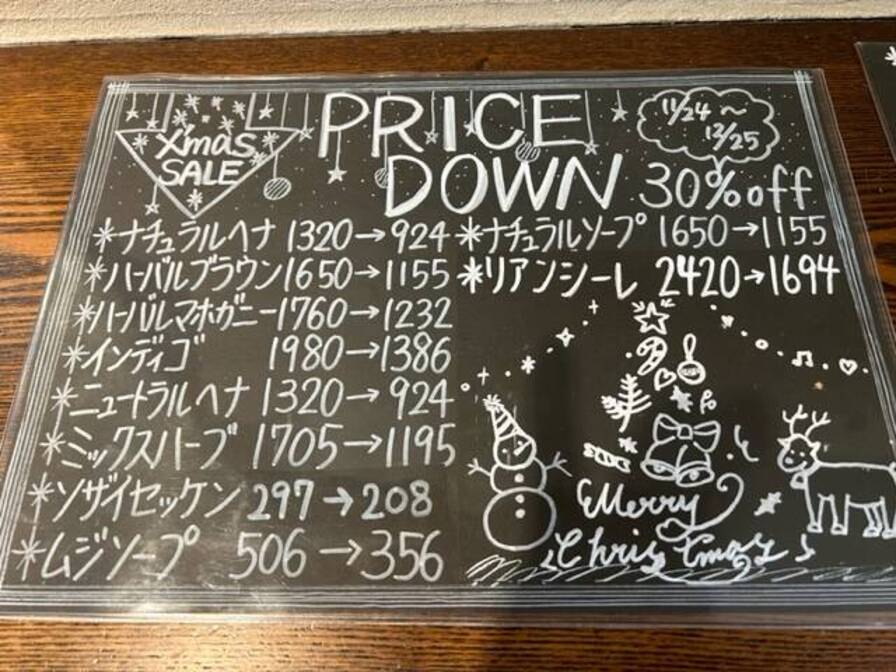 X'mas
SALE
PRICE
DOWN
11/24〜
12/25
30%off
*ナチュラルヘナ 1320→924
*ハーバルブラウン1650→1155
*ハーバルマホガニー1760→1232
*インディゴ 1980→1386
*ニュートラルヘナ 1320→924
*ミックスハーブ 1705→1195
*ソザイセッケン 297→208
*ムジソープ 506→356
*ナチュラルソープ 1650→1155
*リアンシーレ 2420→1694
Merry
Christmas